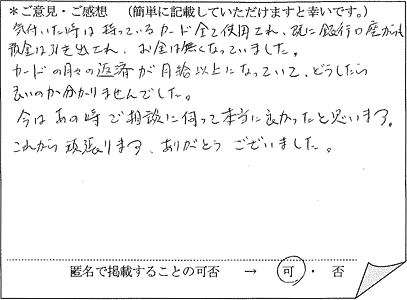 ＊ご意見・ご感想 （簡単に記載していただけますと幸いです。）
気付いた時は持っているカード全て使用され、既に銀行口座から
現金は引き出され、お金は無くなっていました。
カードの月々の返済が月給以上になっていて、どうしたら
良いのか分かりませんでした。
今はあの時ご相談に伺って本当に良かったと思います。
これから頑張ります、ありがとうございました。
匿名で掲載することの可否 → 可 ・ 否